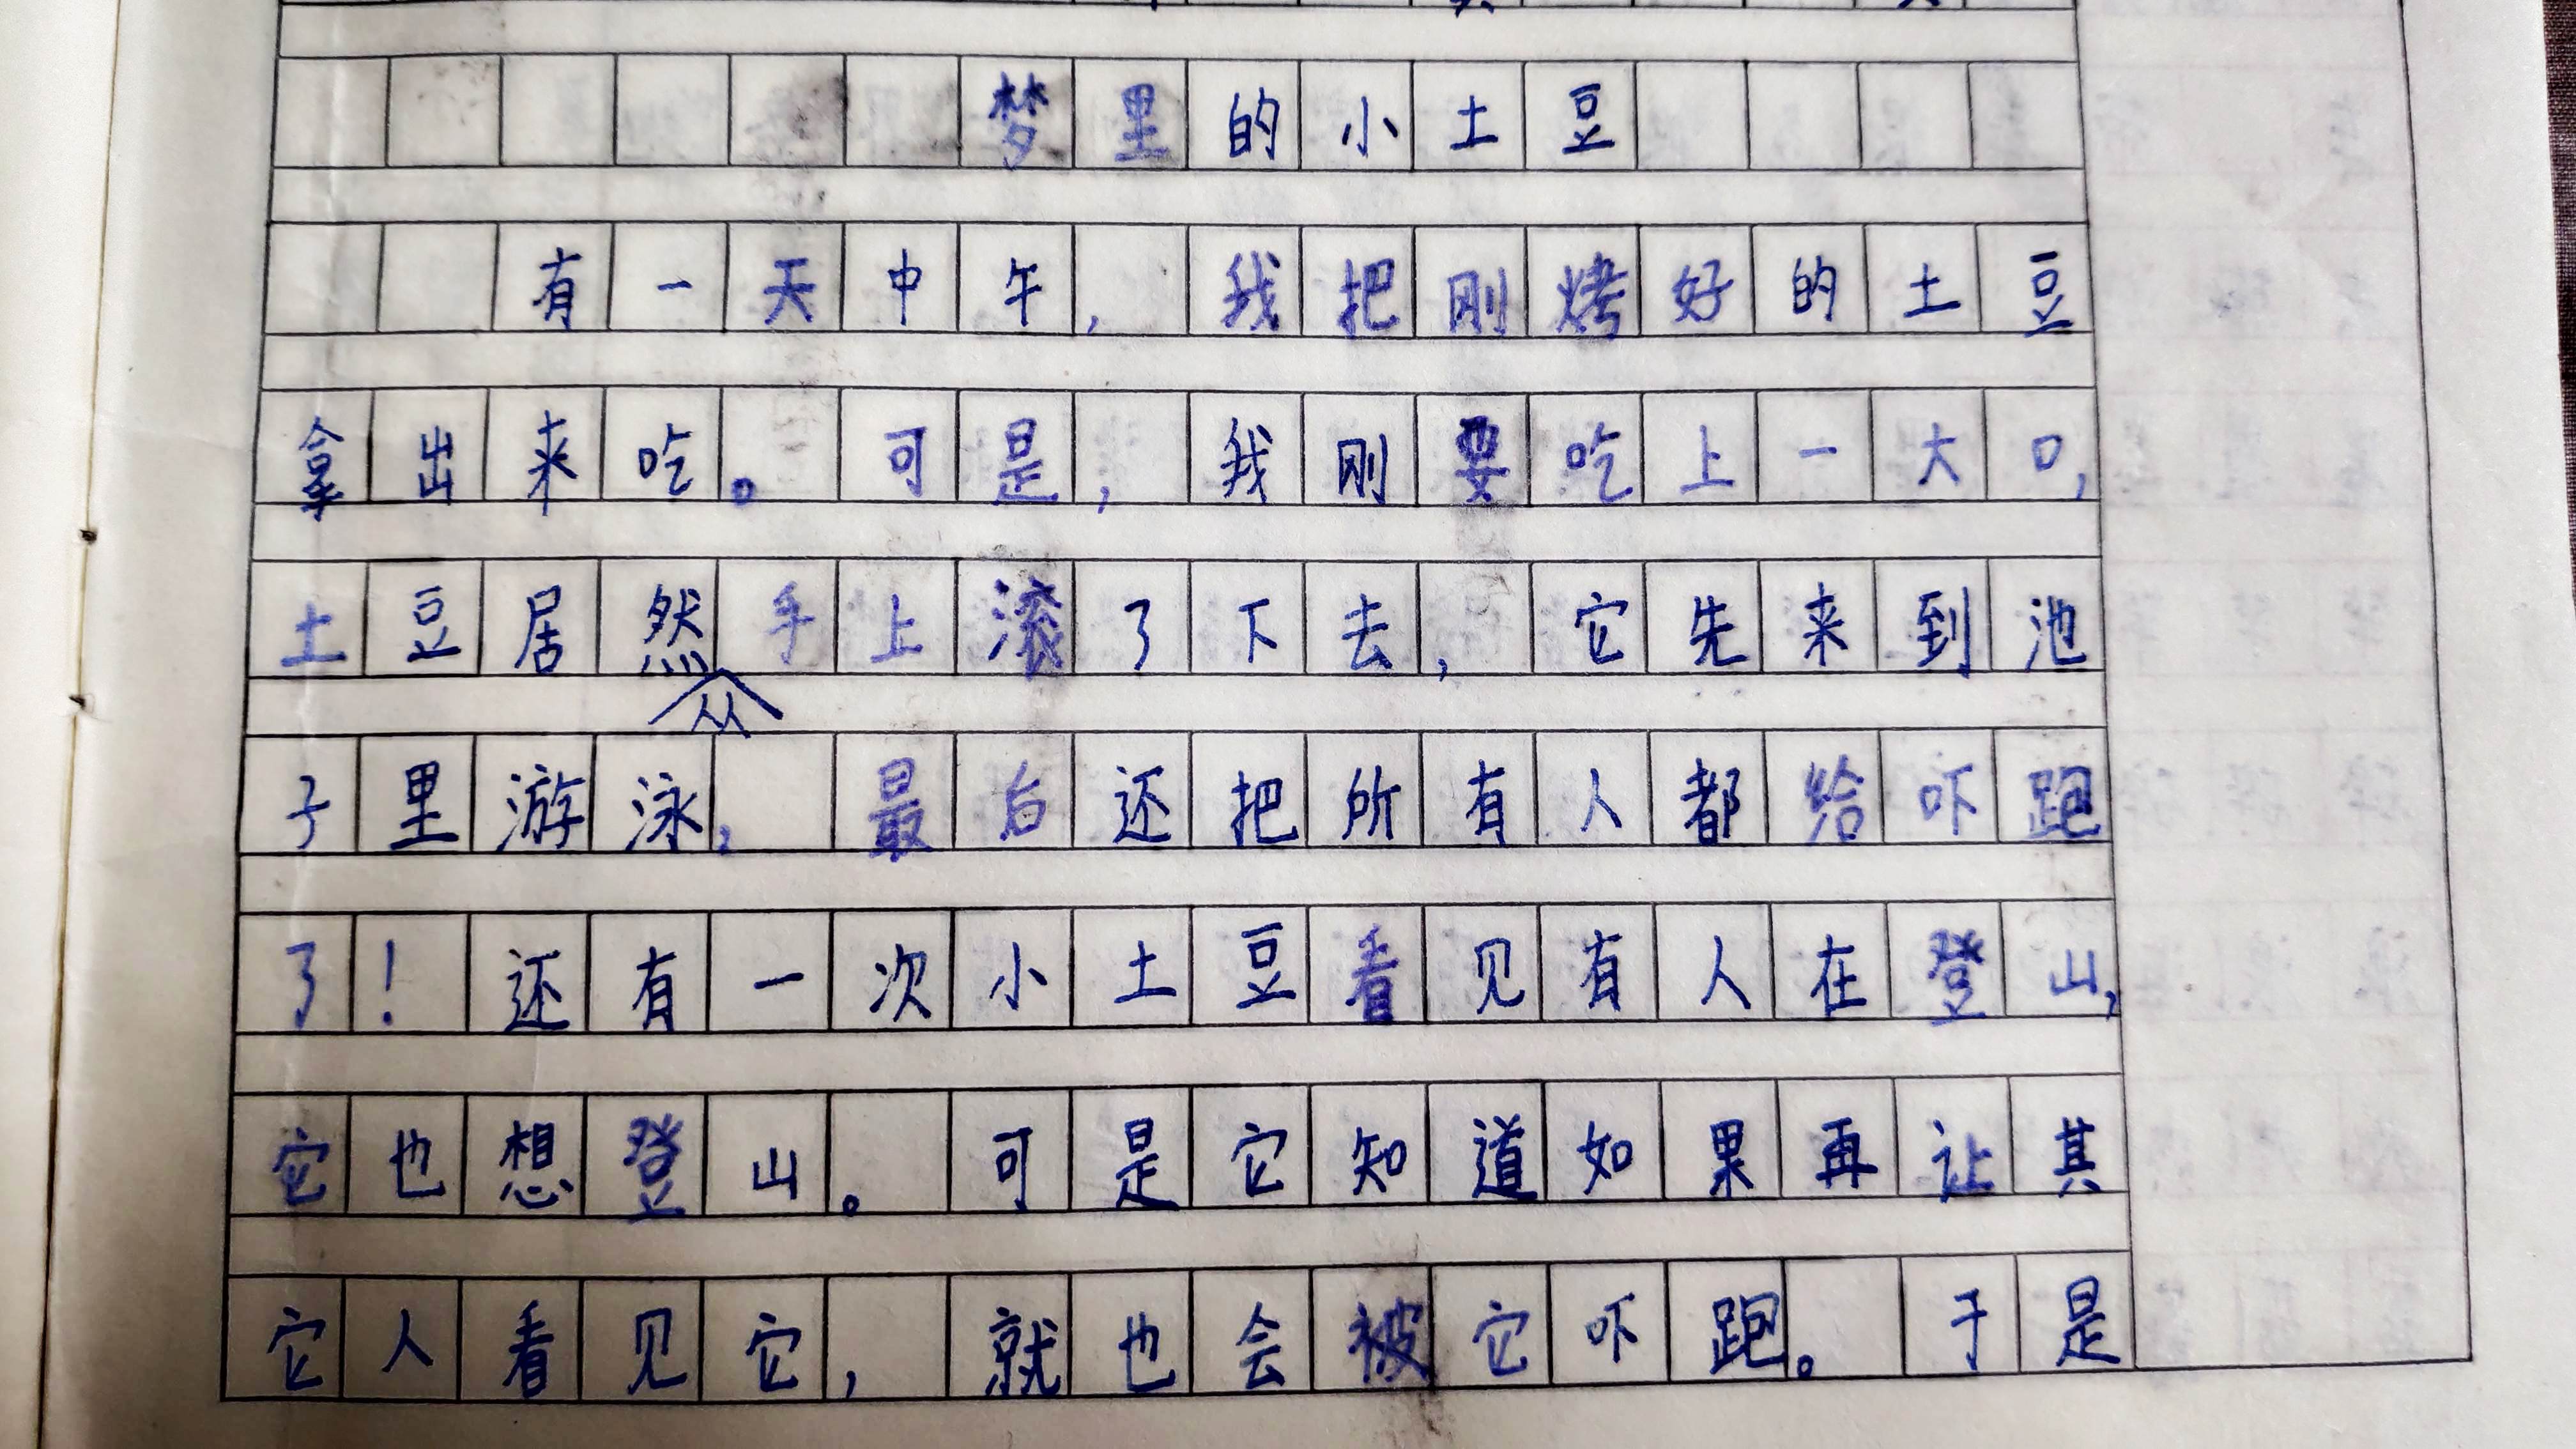 梦里的小土豆
有一天中午，我把刚烤好的土豆
拿出来吃。可是，我刚要吃上一大口，
土豆居然从手上滚了下去，它先来到池
子里游泳，最后还把所有人都给吓跑
了！还有一次小土豆看见有人在登山，
它也想登山。可是它知道如果再让其
它人看见它，就也会被它吓跑。于是